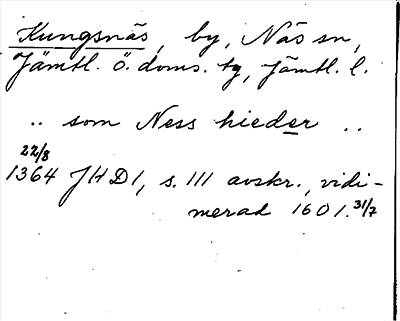 Kungsnäs, by, Näs sn,
Jämtl. ö. doms. tg, Jämtl. l.
.. som Ness hieder ..
22/8
1364 JHD1, s. 111 avskr., vidi-
merad 1601.31/7